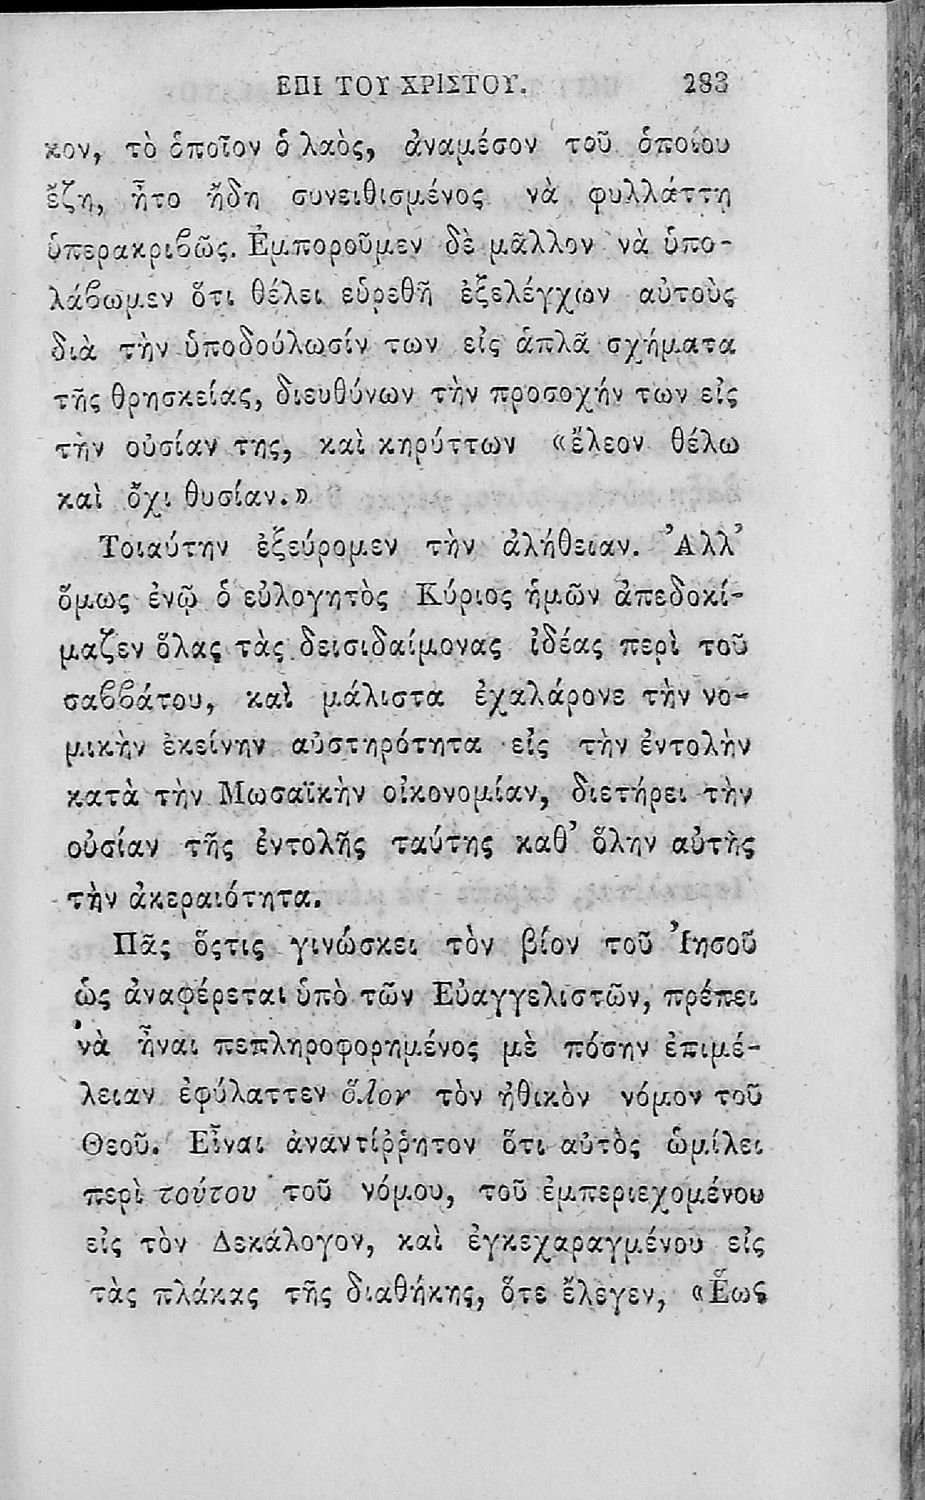 ΕΠΙ ΤΟΥ ΧΡΙΣΤΟΥ. 283
κον, τὸ ὁποῖον ὁ λαὸς, ἀναμέσον τοῦ ὁποίου
ἔζη, ἦτο ἤδη συνειθισμένος νὰ φυλλάττη
ὑπερακριϐῶς. Ἐμποροῦμεν δὲ μᾶλλον νὰ ὑπο-
λάϐωμεν ὅτι θέλει εὑρεθῆ ἐξελέγχων αὐτοὺς
διὰ τὴν ὑποδούλωσίν των εἰς ἁπλᾶ σχήματα
τῆς θρησκείας, διευθύνων τὴν προσοχήν των εἰς
τὴν οὐσίαν της, καὶ κηρύττων «ἔλεον θέλω
καὶ ὄχι θυσίαν.»
Τοιαύτην ἐξεύρομεν τὴν ἀλήθειαν. Ἀλλ’
ὅμως ἐνῷ ὁ εὐλογητὸς Κύριος ἡμῶν ἀπεδοκί-
μαζεν ὅλας τὰς δεισιδαίμονας ἰδέας περὶ τοῦ
σαϐϐάτου, καὶ μάλιστα ἐχαλάρονε τὴν νο-
μικὴν ἐκείνην αὐστηρότητα εἰς τὴν ἐντολὴν
κατὰ τὴν Μωσαϊκὴν οἰκονομίαν, διετήρει τὴν
οὐσίαν τῆς ἐντολῆς ταύτης καθ’ ὅλην αὐτῆς
τὴν ἀκεραιότητα.
Πᾶς ὅςτις γινώσκει τὸν βίον τοῦ Ἰησοῦ
ὡς ἀναφέρεται ὑπὸ τῶν Εὐαγγελιστῶν, πρέπει
νὰ ἦναι πεπληροφορημένος μὲ πόσην ἐπιμέ-
λειαν ἐφύλαττεν ὅλον τὸν ἠθικὸν νόμον τοῦ
Θεοῦ. Εἶναι ἀναντίῤῥητον ὅτι αὐτὸς ὡμίλει
περὶ τούτου τοῦ νόμου, τοῦ ἐμπεριεχομένου
εἰς τὸν Δεκάλογον, καὶ ἐγκεχαραγμένου εἰς
τὰς πλάκας τῆς διαθήκης, ὅτε ἔλεγεν, «Ἕως